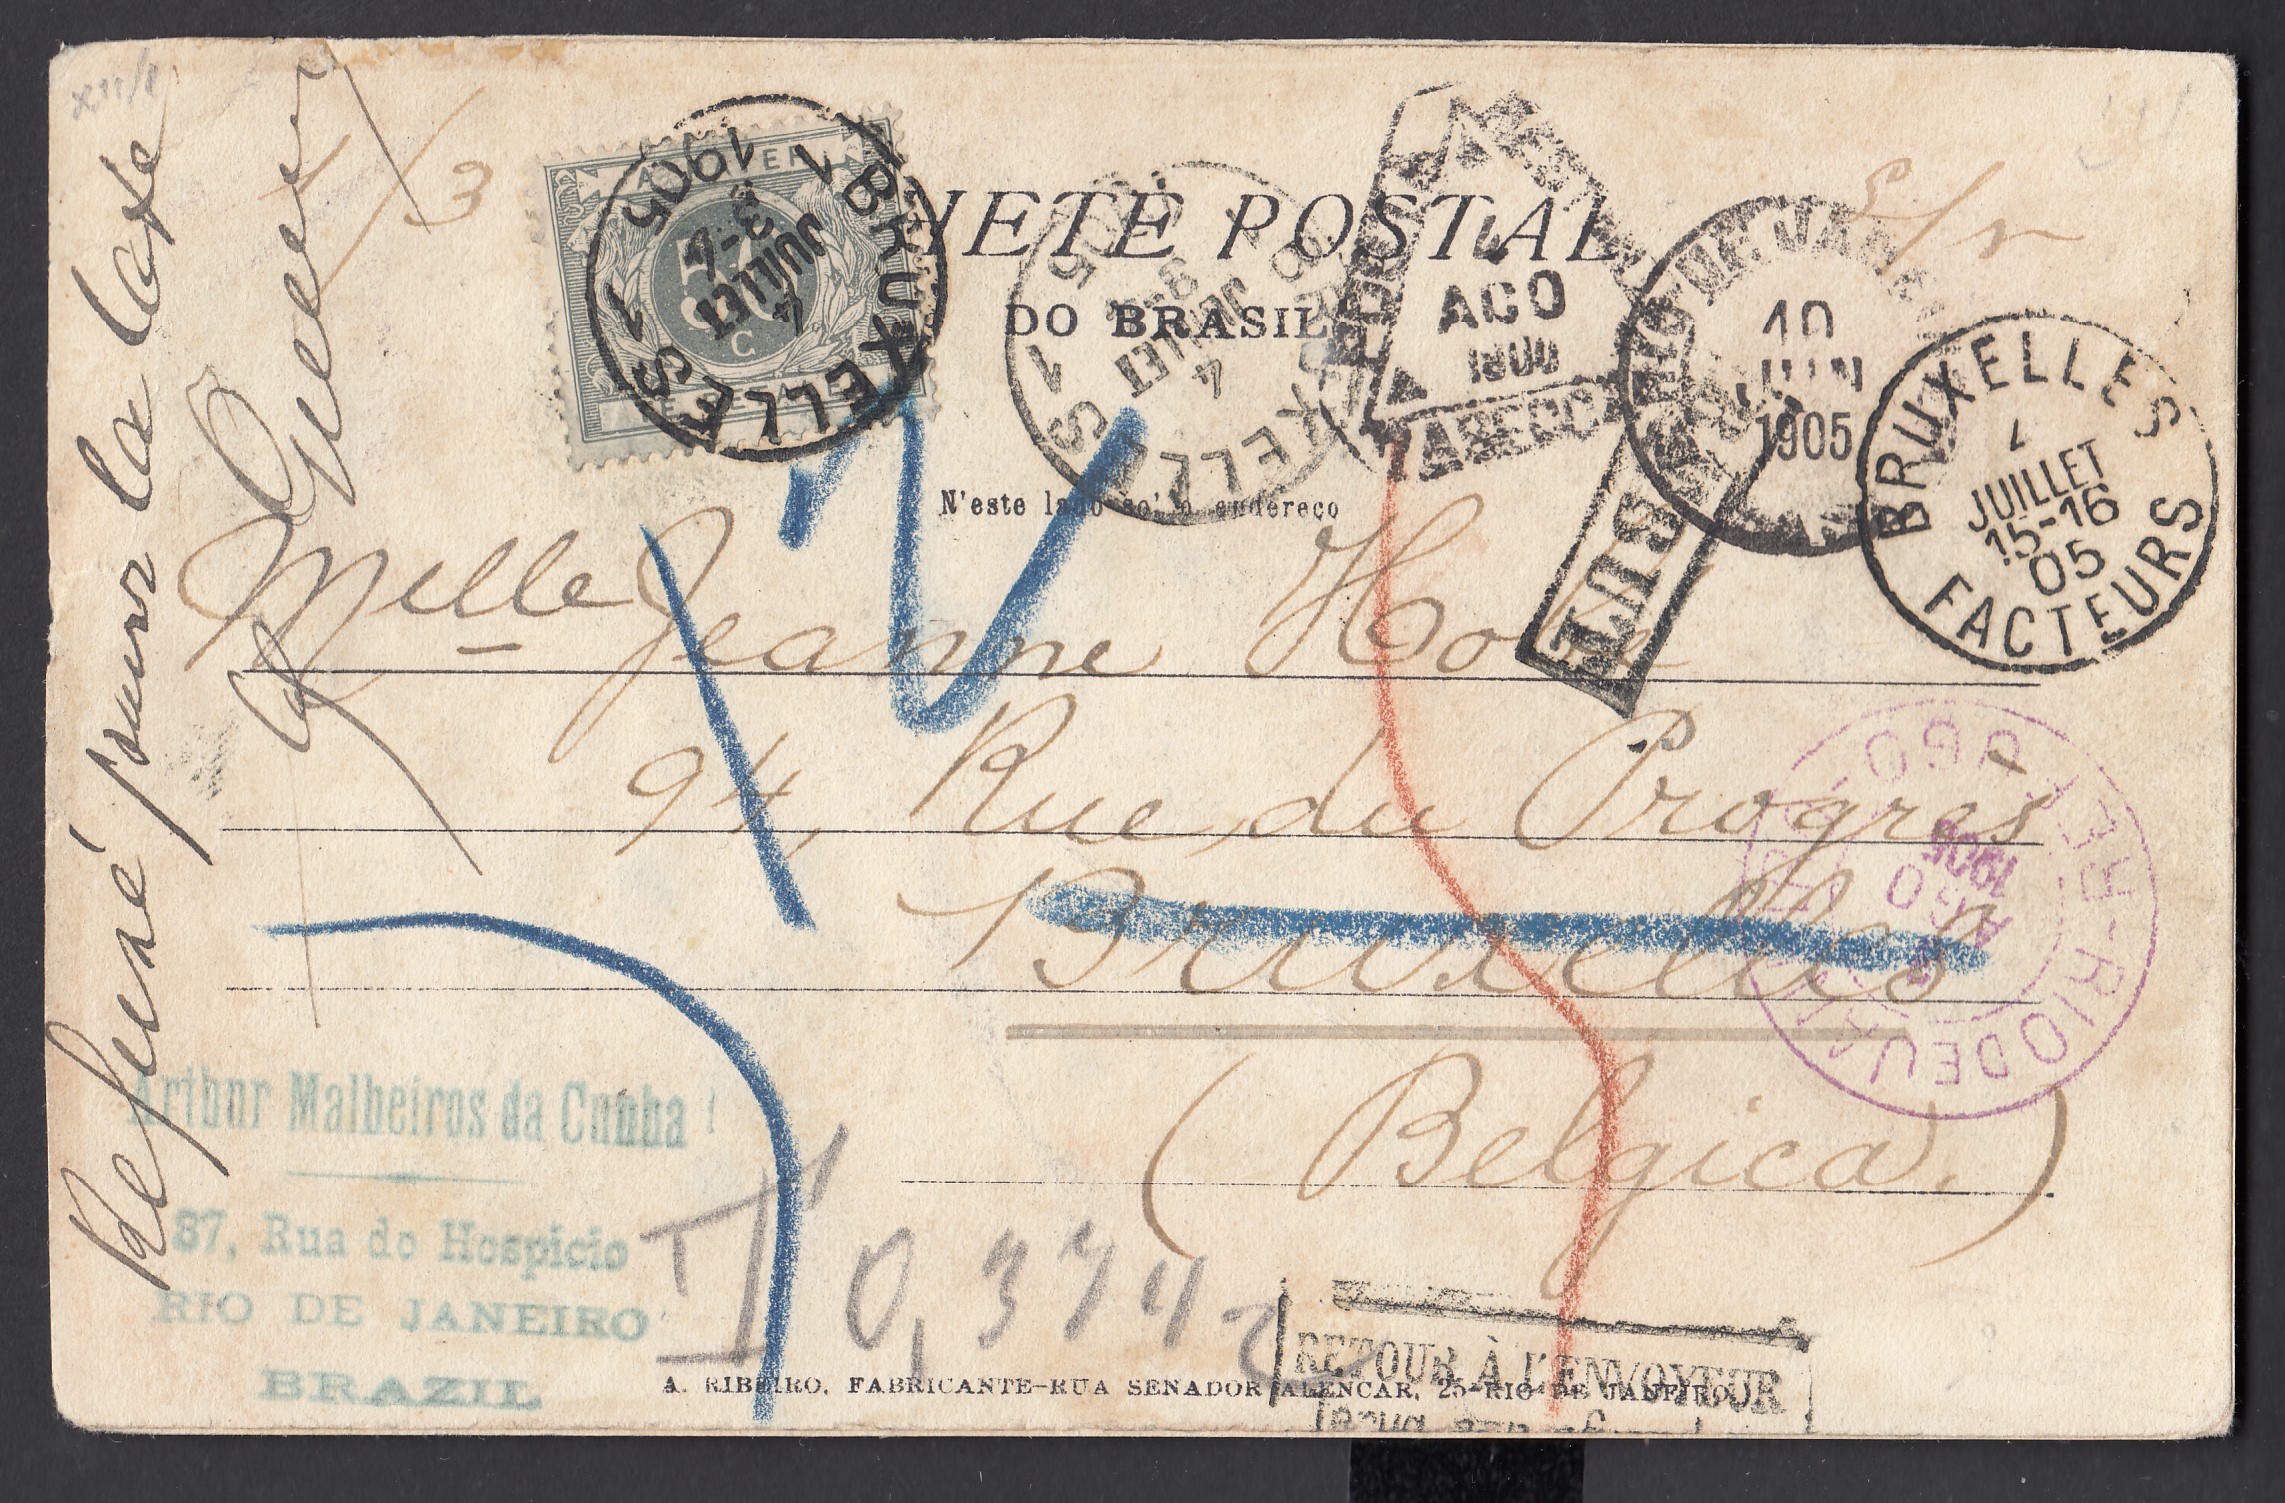 Refusé pour la taxe
1/3
A PAYER
50
C
1 BRUXELLES 1
4
JUILLET
3-4
1905
BRUXELLES 1
4
JUILLET
1905
HETE POSTAL
DO BRASIL
AGO
10
JUN
1905
BRUXELLES
JUILLET
15-16
05
FACTEURS
T
N'este lado so' o endereço
Mlle Jeanne
94, Rue du Progres
Bruxelles
(Belgica.)
RIO DE JANEIRO
AGO
Arthur Malheiros da Cunha
87, Rua do Hospicio
RIO DE JANEIRO
BRAZIL
T 0,374
RETOUR À L'ENVOYEUR
A. RIBEIRO, FABRICANTE-RUA SENADOR ALENCAR, 25-RIO DE JANEIRO